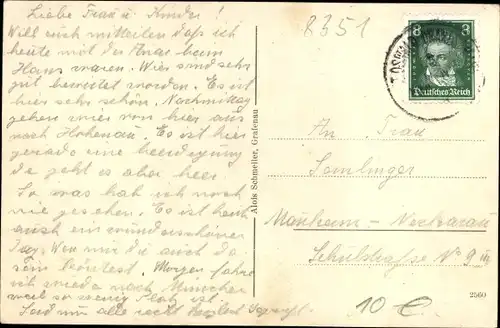 Liebe Frau u Kinder!
Will euch mitteilen daß ich
heute mit der Anna beim
Hans waren. Wir sind sehr
gut bewirtet worden. Es ist
hier sehr schön. Nachmittag
gehen wir von hier aus
nach Hohenau. Es ist hier
gerade eine beerdigung
da geht es aber her.
So was hab ich noch
nie gesehen. Es ist heute
auch ein wunderschöner
Tag. Wen nur du auch da
sein könntest. Morgen fahre
ich wieder nach München
weil so wenig Platz ist.
Seid nun alle recht herzlich
8351
8 8
Deutsches Reich
An Frau
Somlinger
Manheim - Neckarau
Schulstrasse No 9 III
Alois Schmeller, Grafenau
10 €
2560